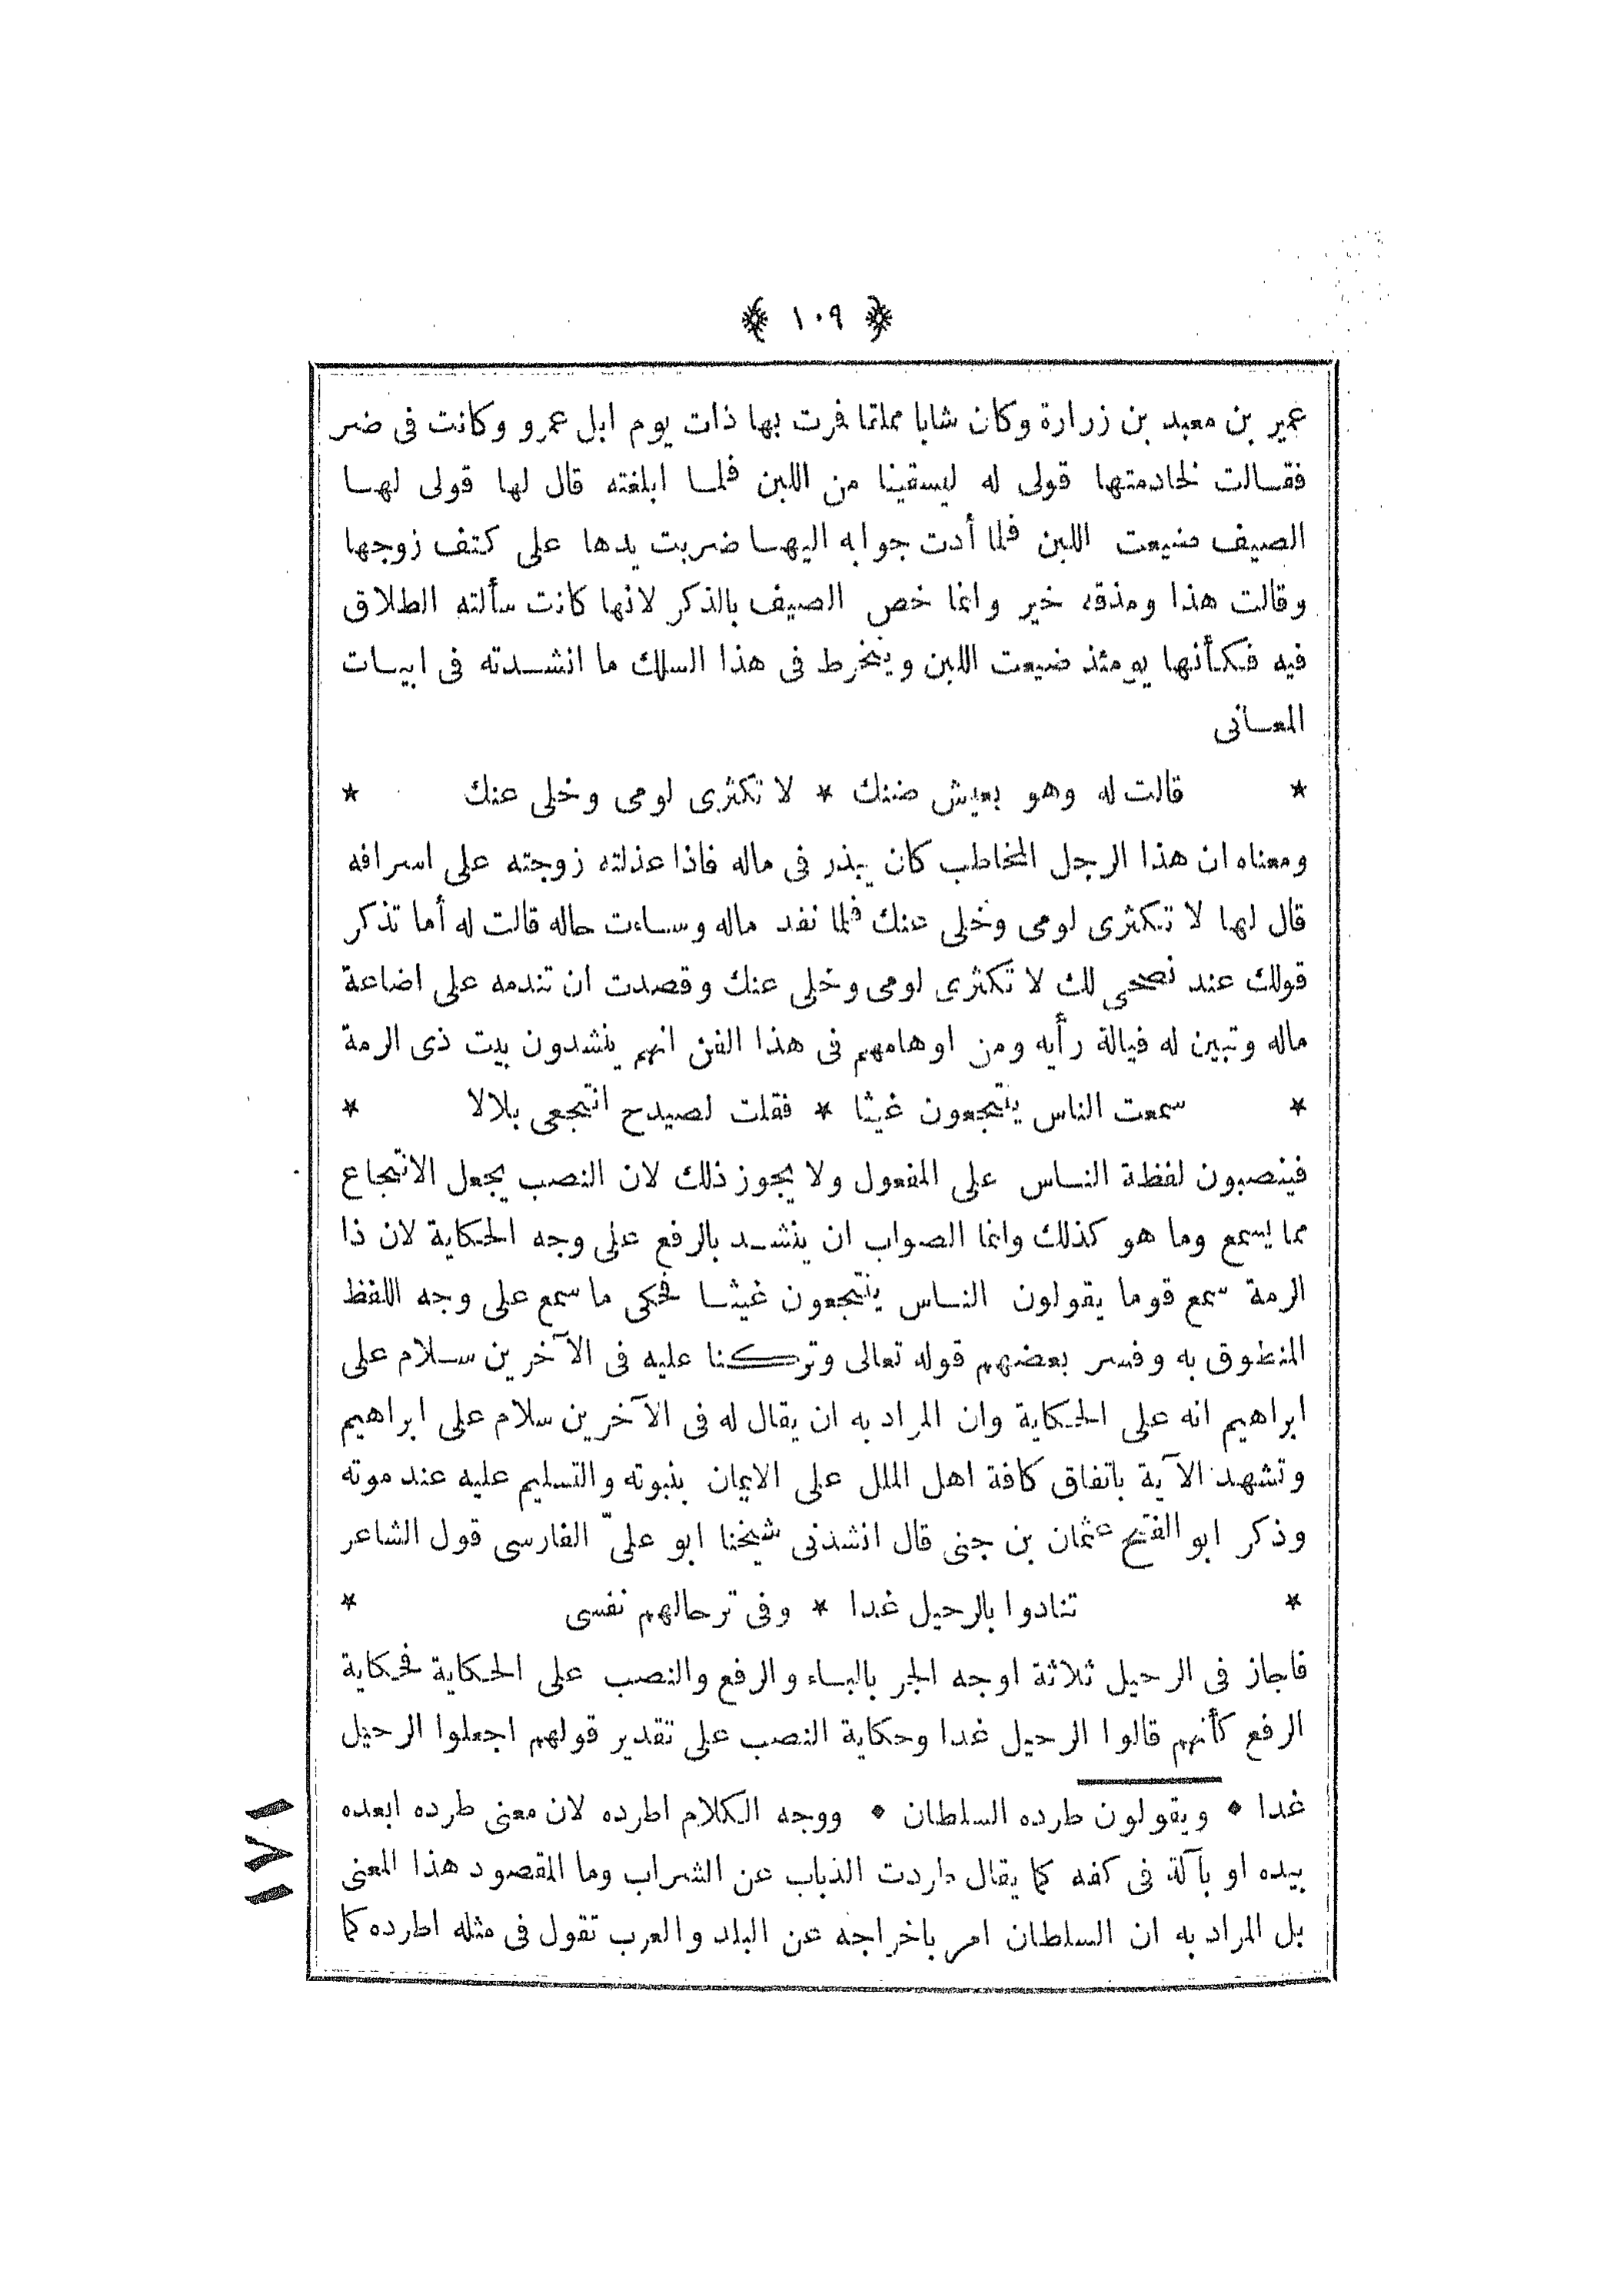 ﴿ ١٠٩ ﴾
عمير بن معبد بن زرارة وكان شابا مملقا فمرت بها ذات يوم ابل عمرو وكانت فى ضر
فقالت لخادمتها قولى له ليسقينا من اللبن فلما ابلغته قال لها قولى لها
الصيف ضيعت اللبن فلما أدت جوابه اليها ضربت يدها على كتف زوجها
وقالت هذا ومذقه خير وانما خص الصيف بالذكر لانها كانت سألته الطلاق
فيه فكأنها يومئذ ضيعت اللبن وينخرط فى هذا السلك ما انشدته فى ابيات
المعانى
* قالت له وهو بعيش ضنك * لا تكثرى لومى وخلى عنك *
ومعناه ان هذا الرجل المخاطب كان يبذر فى ماله فاذا عذلته زوجته على اسرافه
قال لها لا تكثرى لومى وخلى عنك فلما نفد ماله وساءت حاله قالت له أما تذكر
قولك عند نصحى لك لا تكثرى لومى وخلى عنك وقصدت ان تندمه على اضاعة
ماله وتبين له فيالة رأيه ومن اوهامهم فى هذا الفن انهم ينشدون بيت ذى الرمة
* سمعت الناس ينتجعون غيثا * فقلت لصيدح انتجعى بلالا *
فينصبون لفظة الناس على المفعول ولا يجوز ذلك لان النصب يجعل الانتجاع
مما يسمع وما هو كذلك وانما الصواب ان ينشد بالرفع على وجه الحكاية لان ذا
الرمة سمع قوما يقولون الناس ينتجعون غيثا فحكى ما سمع على وجه اللفظ
المنطوق به وفسر بعضهم قوله تعالى وتركنا عليه فى الآخرين سلام على
ابراهيم انه على الحكاية وان المراد به ان يقال له فى الآخرين سلام على ابراهيم
وتشهد الآية باتفاق كافة اهل الملل على الايمان بنبوته والتسليم عليه عند موته
وذكر ابو الفتح عثمان بن جنى قال انشدنى شيخنا ابو علىّ الفارسى قول الشاعر
* تنادوا بالرحيل غدا * وفى ترحالهم نفسى *
فاجاز فى الرحيل ثلاثة اوجه الجر بالباء والرفع والنصب على الحكاية فحكاية
الرفع كأنهم قالوا الرحيل غدا وحكاية النصب على تقدير قولهم اجعلوا الرحيل
غدا ◆ ويقولون طرده السلطان ◆ ووجه الكلام اطرده لان معنى طرده ابعده
بيده او بآلة فى كفه كما يقال طردت الذباب عن الشراب وما المقصود هذا المعنى
بل المراد به ان السلطان امر باخراجه عن البلد والعرب تقول فى مثله اطرده كما
١٧١